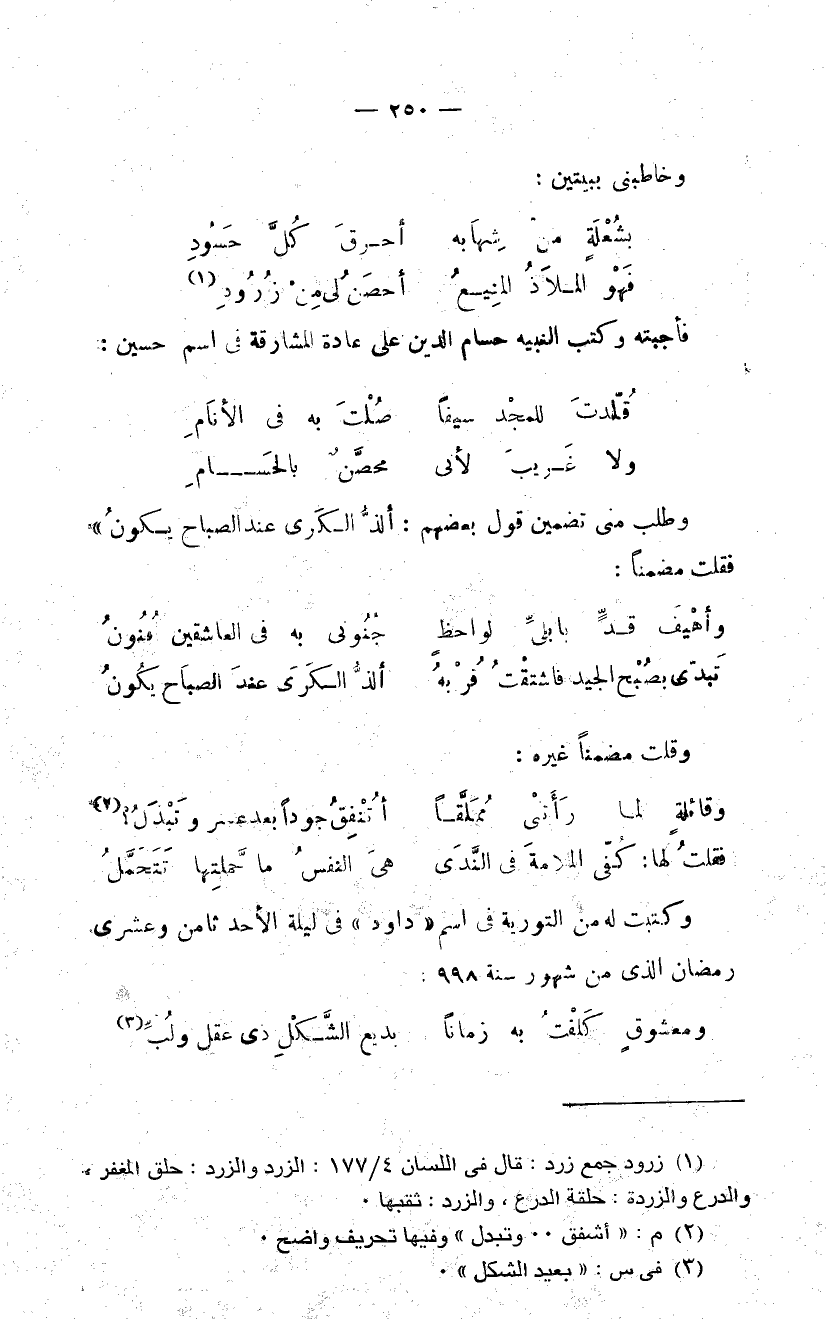 — ٢٥٠ —
وخاطبنى ببيتين :
بشُعْلَةٍ من شِهابه أحـرقَ كُلَّ حَسُودِ
فَهْو المـلاَذُ المنِيـعُ أحصَنُ لى مِنْ زُرُودِ (١)
فأجبته وكتب النبيه حسام الدين على عادة المشارقة فى اسم حسين :
قُلّدتَ للمجْد سيفاً صُلْتَ به فى الأنَامِ
ولا غَـريبَ لأنى محصَّنٌ بالحسَـــامِ
وطلب منى تضمين قول بعضهم : ألذُّ الـكَرَى عند الصباح يـكونُ »
فقلت مضمناً :
وأهْيفَ قـدٍّ بابليِّ لواحظٍ جُنُونى به فى العاشقين فُنُونُ
تبدّى بصُبْح الجيد فاشتقْتُ قُرْبهُ ألذُّ الـكَرَى عندَ الصباَح يكُونُ
وقلت مضمناً غيره :
وقائلةٍ لمـا رَأَتنْى مُمَلَّقـاً أتُنْفِقُ جوداً بعد عسر وتَبْذَلُ؟ (٢)
فقلتُ لها: كُفّى الملامةَ فى النَّدَى هىَ النفسُ ما حَّملتِها تَتَحَمَّلُ
وكتبت له من التورية فى اسم « داود » فى ليلة الأحد ثامن وعشرى
رمضان الذى من شهور سنة ٩٩٨ :
ومعشوقٍ كَلفْتُ به زماناً بديع الشَّـكْلِ ذى عقل ولُبِّ (٣)
(١) زرود جمع زرد : قال فى اللسان ١٧٧/٤ : الزرد والزرد : حلق المغفر ،
والدرع والزردة : حلقة الدرع ، والزرد : ثقبها ٠
(٢) م : « أشفق ٠٠ وتبدل » وفيها تحريف واضح ٠
(٣) فى س : « بعيد الشكل » ٠